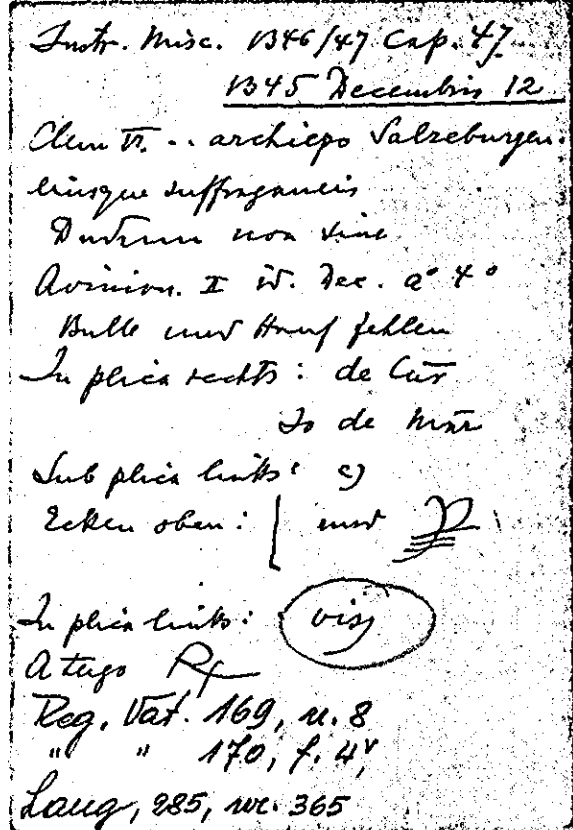 Instr. Misc. 1346/47 Cap. 47
1345 Decembris 12
Clem VI. .. archiepo Salzeburgen.
eiusque suffraganeis
Dudum non sine
Avinion. II id. Dec. a° 4°
Bulle und Hanf fehlen
In plica rechts: de Cur
Jo de
Sub plica links: c)
Ecken oben: [ und
In plica links:
A tergo R
Reg. Vat. 169, n. 8
" " 170, f. 4v,
Lang, 285, nr. 365